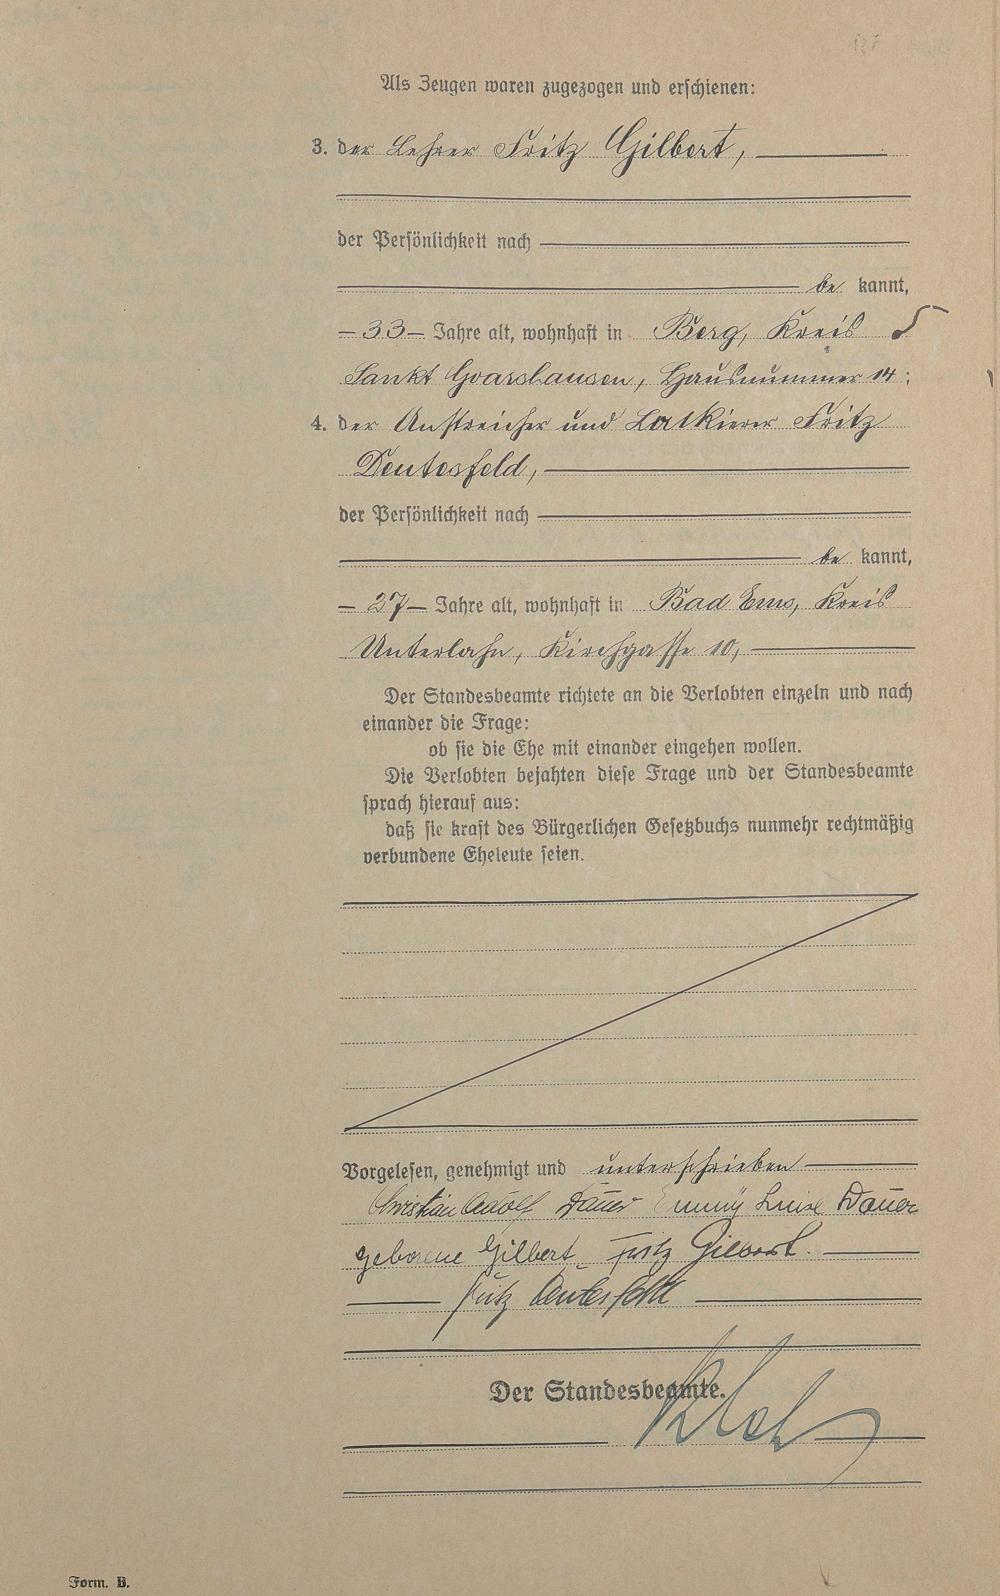 Als Zeugen waren zugezogen und erschienen:
3. der Lehrer Fritz Gilbert,
der Persönlichkeit nach
be kannt,
33 Jahre alt, wohnhaft in Berg, Kreis
Sankt Goarshausen, Hausnummer 14;
4. der Anstreicher und Lackierer Fritz
Deutesfeld,
der Persönlichkeit nach
be kannt,
27 Jahre alt, wohnhaft in Bad Ems, Kreis
Unterlahn, Kirchgasse 10,
Der Standesbeamte richtete an die Verlobten einzeln und nach
einander die Frage:
ob sie die Ehe mit einander eingehen wollen.
Die Verlobten bejahten diese Frage und der Standesbeamte
sprach hierauf aus:
daß sie kraft des Bürgerlichen Gesetzbuchs nunmehr rechtmäßig
verbundene Eheleute seien.
Vorgelesen, genehmigt und unterschrieben
Christian Adolf Dauer Emmy Luise Dauer
geborene Gilbert Fritz Gilbert.
Fritz Deutesfeld
Der Standesbeamte.
Form. B.